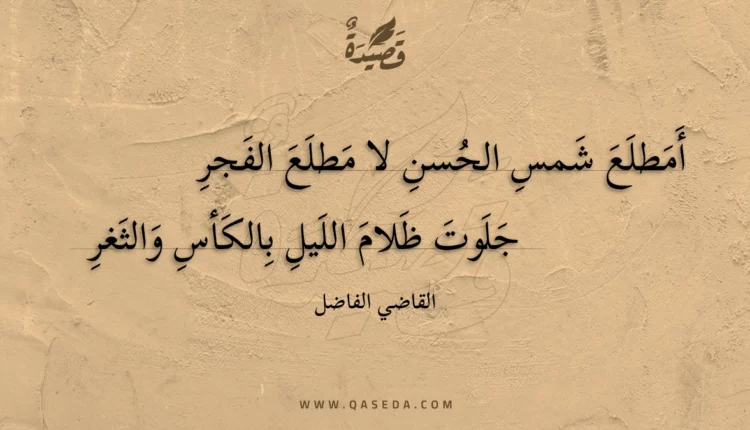 قَصِيدَةٌ
أَمَطلَعَ شَمسِ الحُسنِ لا مَطلَعَ الفَجرِ
جَلَوتَ ظَلامَ اللَيلِ بِالكَأسِ وَالثَغرِ
القاضي الفاضل
WWW.QASEDA.COM